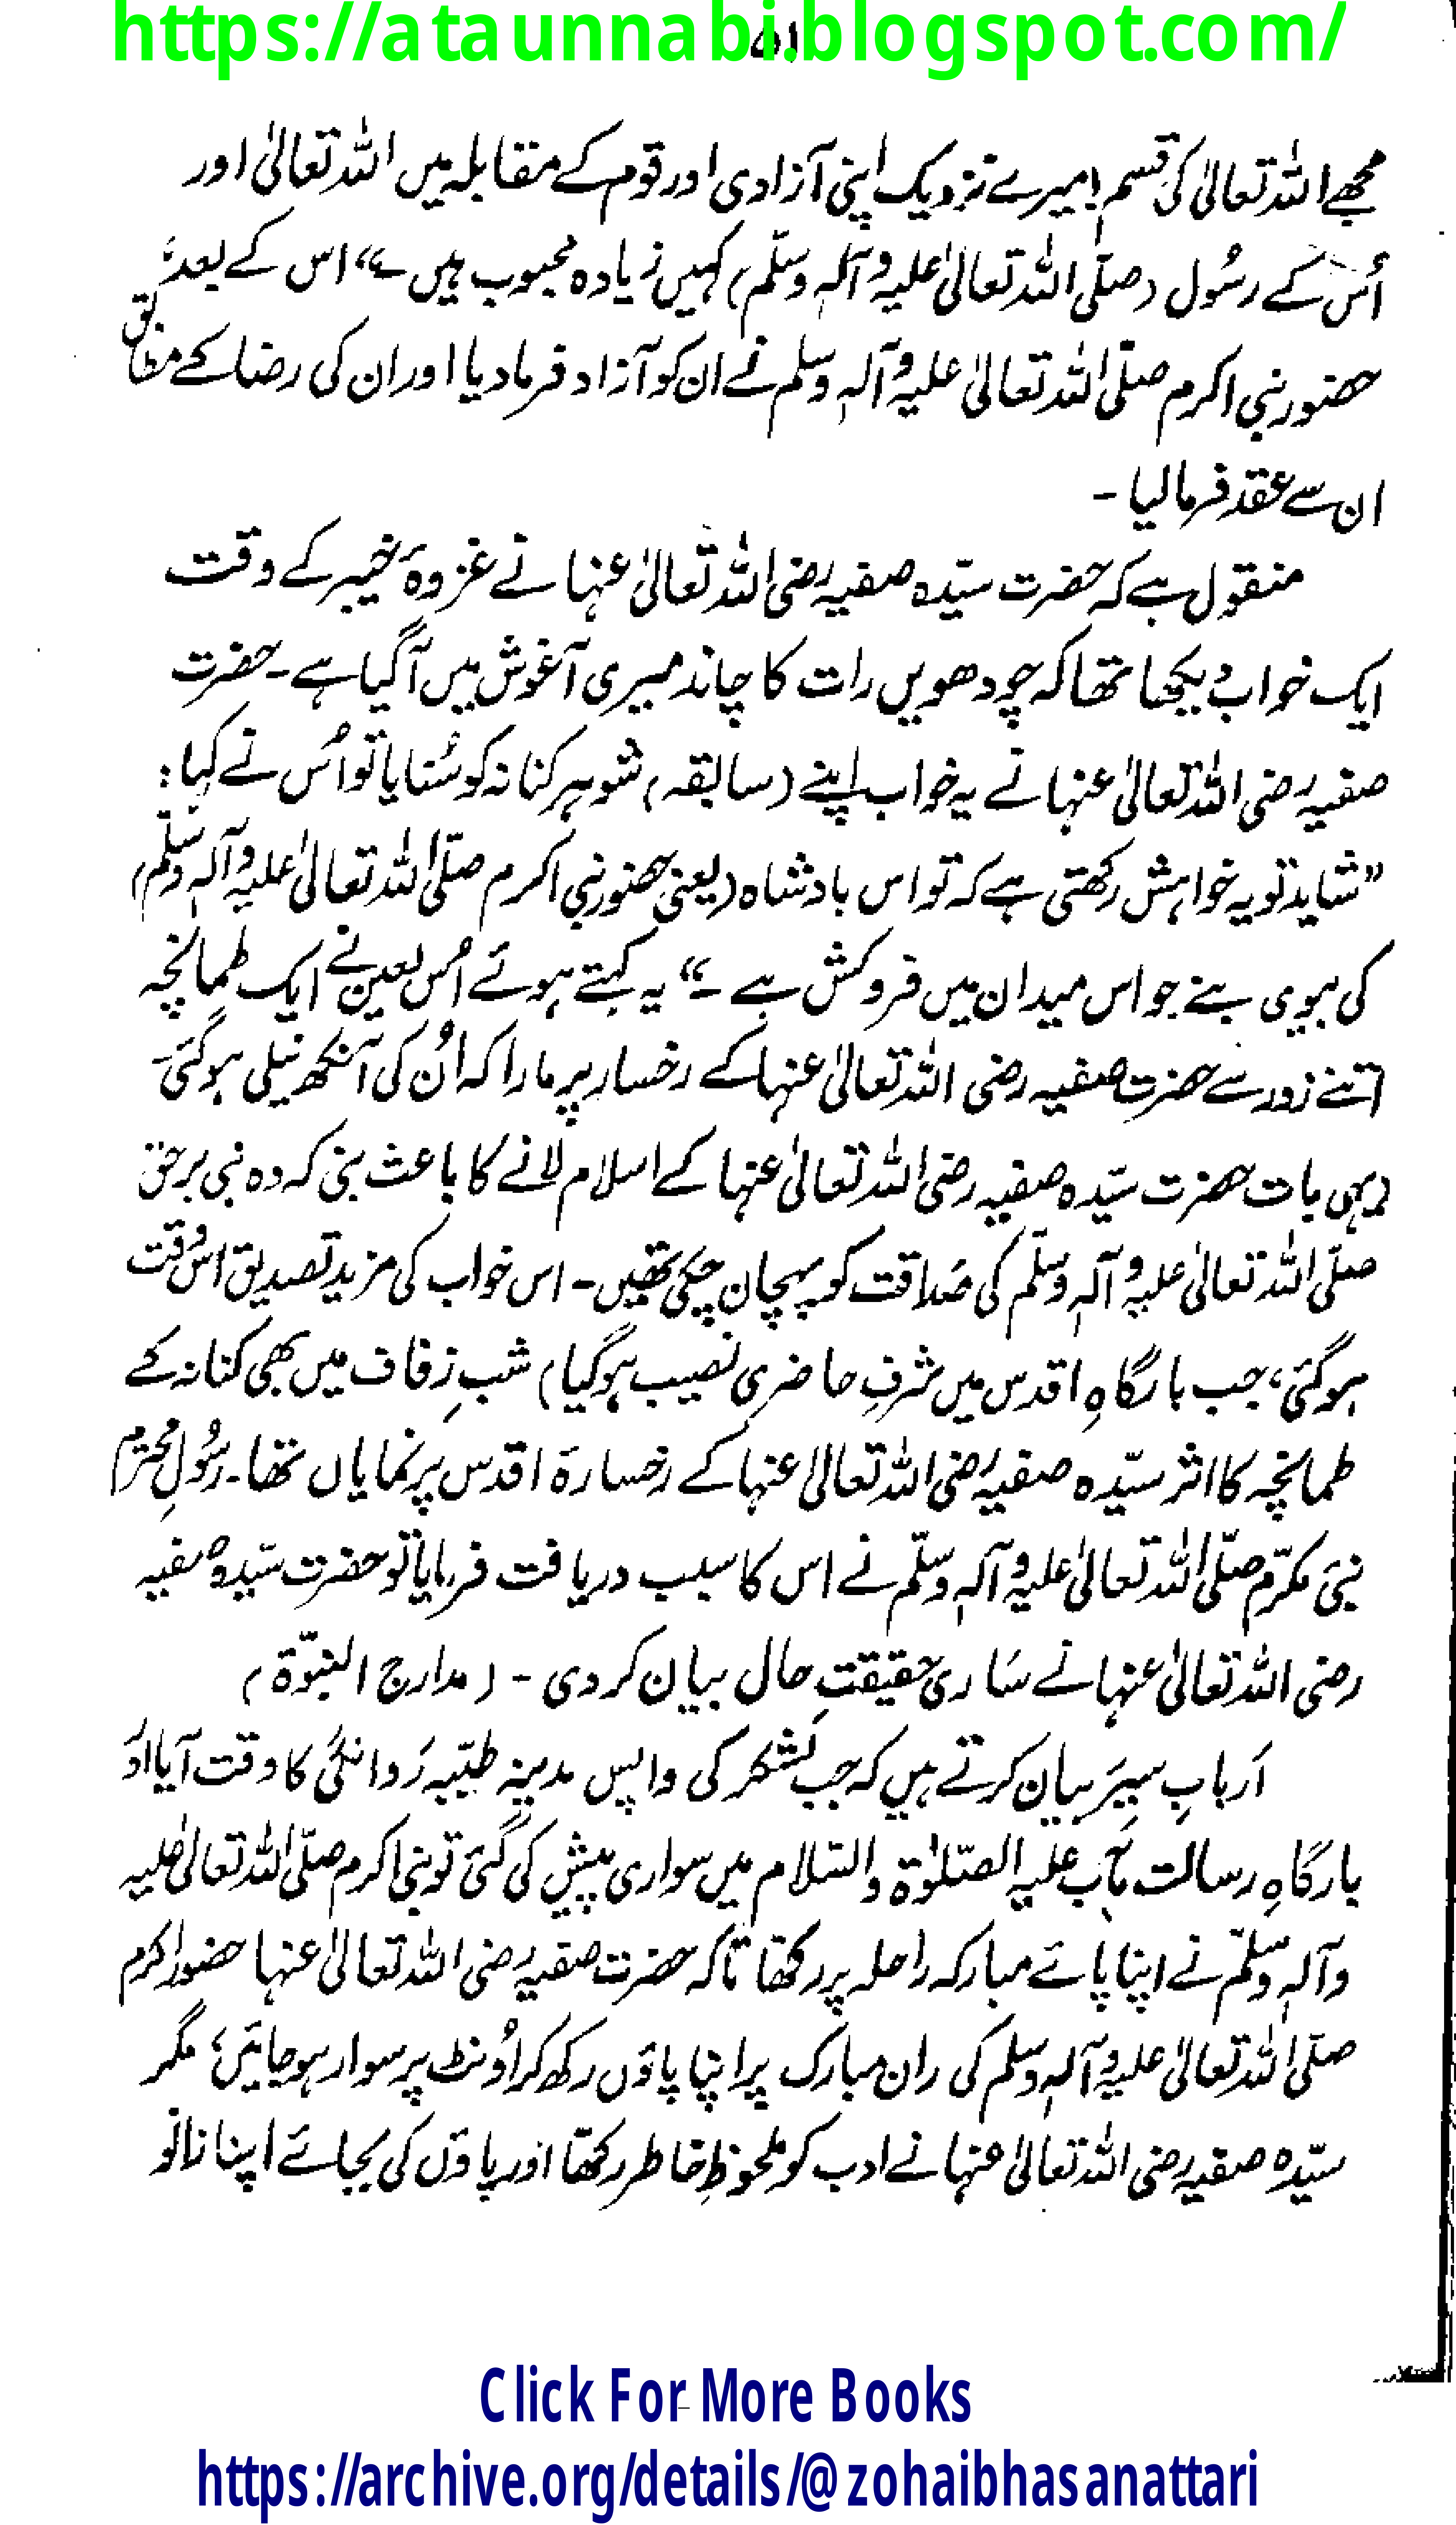 https://ataunnabi.blogspot.com/
۵۱
مجھے اللہ تعالیٰ کی قسم! میرے نزدیک اپنی آزادی اور قوم کے مقابلہ میں اللہ تعالیٰ اور
اُس کے رسُول (صلّی اللہ تعالیٰ علیہ وآلہٖ وسلّم) کہیں زیادہ محبوب ہیں ۔“ اس کے بعد
حضور نبی اکرم صلّی اللہ تعالیٰ علیہ وآلہٖ وسلم نے ان کو آزاد فرما دیا اور ان کی رضا کے مطابق
ان سے عقد فرما لیا ۔
منقول ہے کہ حضرت سیّدہ صفیہ رضی اللہ تعالیٰ عنہا نے غزوۂ خیبر کے وقت
ایک خواب دیکھا تھا کہ چودھویں رات کا چاند میری آغوش میں آگیا ہے ۔ حضرت
صفیہ رضی اللہ تعالیٰ عنہا نے یہ خواب اپنے (سابقہ) شوہر کنانہ کو سُنایا تو اُس نے کہا :
”شاید تو یہ خواہش رکھتی ہے کہ تو اس بادشاہ (یعنی حضور نبی اکرم صلّی اللہ تعالیٰ علیہ وآلہٖ وسلّم)
کی بیوی بنے جو اس میدان میں فروکش ہے ۔“ یہ کہتے ہوئے اُس لعین نے ایک طمانچہ
اتنے زور سے حضرت صفیہ رضی اللہ تعالیٰ عنہا کے رخسار پر مارا کہ اُن کی آنکھ نیلی ہوگئی ۔
(یہی بات حضرت سیّدہ صفیہ رضی اللہ تعالیٰ عنہا کے اسلام لانے کا باعث بنی کہ وہ نبی برحق
صلّی اللہ تعالیٰ علیہ وآلہٖ وسلّم کی صَداقت کو پہچان چکی تھیں ۔ اس خواب کی مزید تصدیق اس وقت
ہوگئی، جب بارگاہِ اقدس میں شرفِ حاضری نصیب ہوگیا) شبِ زفاف میں بھی کنانہ کے
طمانچہ کا اثر سیّدہ صفیہ رضی اللہ تعالیٰ عنہا کے رخسارۂ اقدس پر نمایاں تھا ۔ رسُولِ محترم
نبیٔ مکرّم صلّی اللہ تعالیٰ علیہ وآلہٖ وسلّم نے اس کا سبب دریافت فرمایا تو حضرت سیّدہ صفیہ
رضی اللہ تعالیٰ عنہا نے سَاری حقیقتِ حال بیان کر دی ۔ (مدارج النبوّۃ)
اَربابِ سِیَر بیان کرتے ہیں کہ جب لشکر کی واپس مدینہ طیّبہ رَوانگی کا وقت آیا اور
بارگاہِ رسالت مآب علیہ الصّلوٰۃ والسّلام میں سواری پیش کی گئی تو نبی اکرم صلّی اللہ تعالیٰ علیہ
وآلہٖ وسلّم نے اپنا پائے مبارکہ راحلہ پر رکھا تاکہ حضرت صفیہ رضی اللہ تعالیٰ عنہا حضور اکرم
صلّی اللہ تعالیٰ علیہ وآلہٖ وسلم کی ران مبارک پر اپنا پاؤں رکھ کر اُونٹ پر سوار ہو جائیں، مگر
سیّدہ صفیہ رضی اللہ تعالیٰ عنہا نے ادب کو ملحوظِ خاطر رکھّا اور پاؤں کی بجائے اپنا زانو
Click For More Books
https://archive.org/details/@zohaibhasanattari